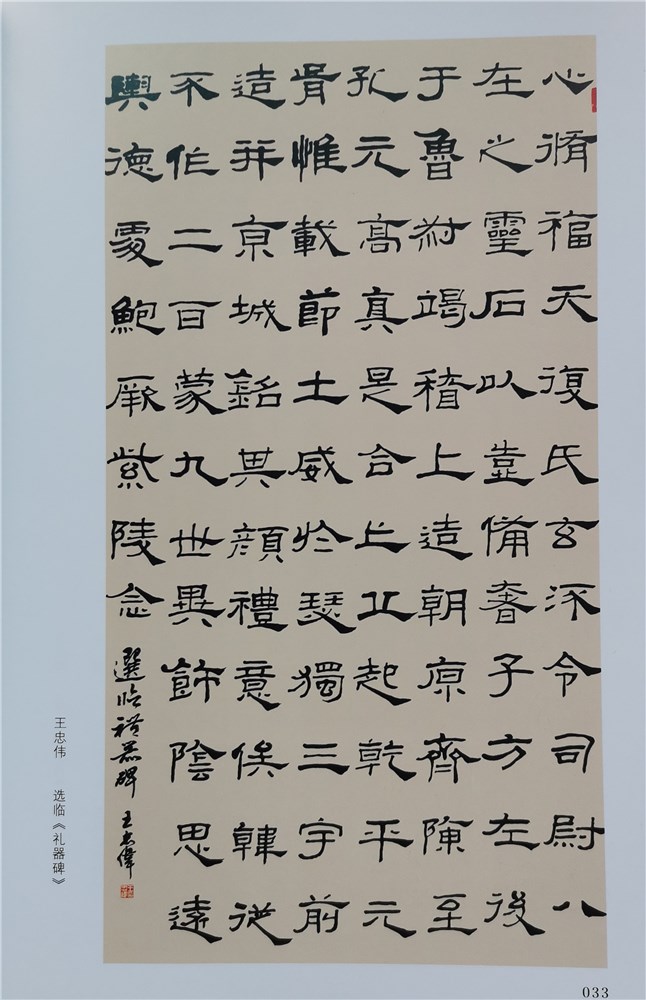 心脩福天復氏玄涿令司尉八
在之靈石以靠備奢子方左後
于魯竭稽上造朝原齊陳至
孔元高真是合上丘起乾平元
胥惟載節土威於瑟獨三宇前
造并京城銘其顔禮意俟韓從
不作二百蒙九世異飾陰思遠
輿德鮑厥紫陵念
選臨禮器碑 王忠偉
王忠伟 选临《礼器碑》
033